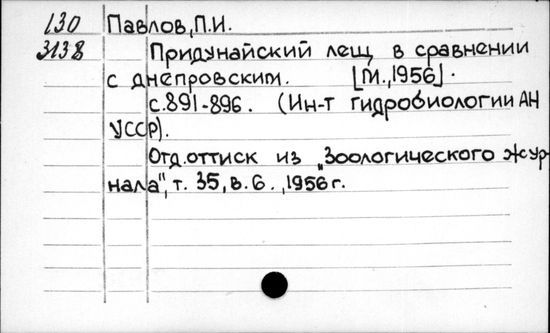 130 Павлов, П.И.
3138 Придунайский лещ в сравнении
с днепровским. [М., 1956].
с. 891-896. (Ин-т гидробиологии АН
УССР).
Отд. оттиск из „Зоологического жур-
нала", т. 35, в. 6., 1956 г.